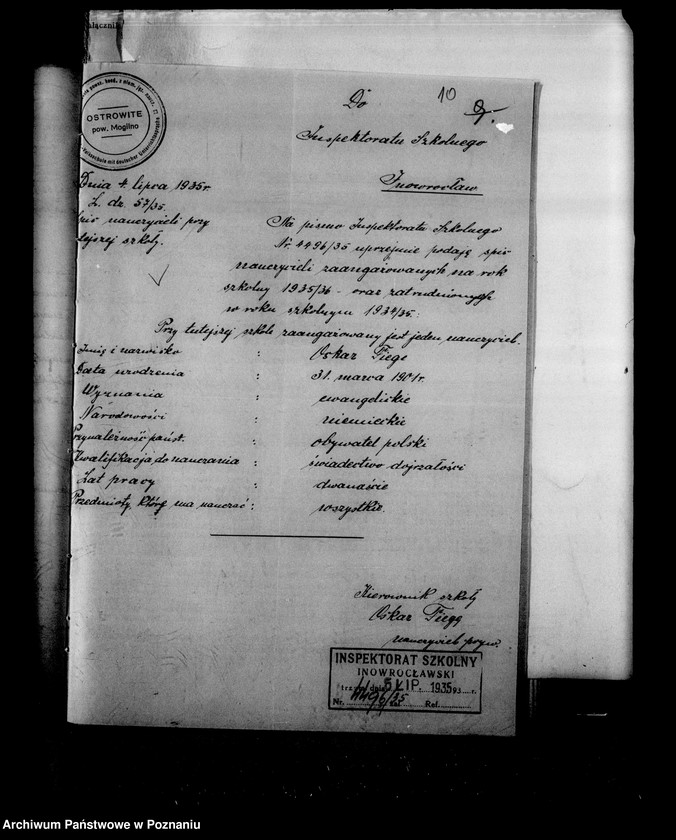 Do
10
Inspektoratu Szkolnego
Inowrocław
OSTROWITE
pow. Mogilno
Dnia 4. lipca 1935r.
L. dz. 57/35.
Spis nauczycieli przy
tejszej szkoły.
Na pismo Inspektoratu Szkolnego
Nr. 4496/35 uprzejmie podaję spis
nauczycieli zaangażowanych na rok
szkolny 1935/36 – oraz zatrudnionych
w roku szkolnym 1934/35:
Przy tutejszej szkole zaangażowany jest jeden nauczyciel.
Imię i nazwisko : Oskar Fiege
Data urodzenia : 31. marca 1901r.
Wyznania : ewangelickie
Narodowości : niemieckie
Przynależność państ. : obywatel polski
Kwalifikacja do nauczania : świadectwo dojrzałości
Lat pracy : dwanaście
Przedmioty, które ma nauczać : wszystkie.
Kierownik szkoły
Oskar Fiege
nauczyciel pryw.
INSPEKTORAT SZKOLNY
INOWROCŁAWSKI
dnia 5 LIP. 1935 93 r.
Nr. 4496/35 Ref.
Archiwum Państwowe w Poznaniu